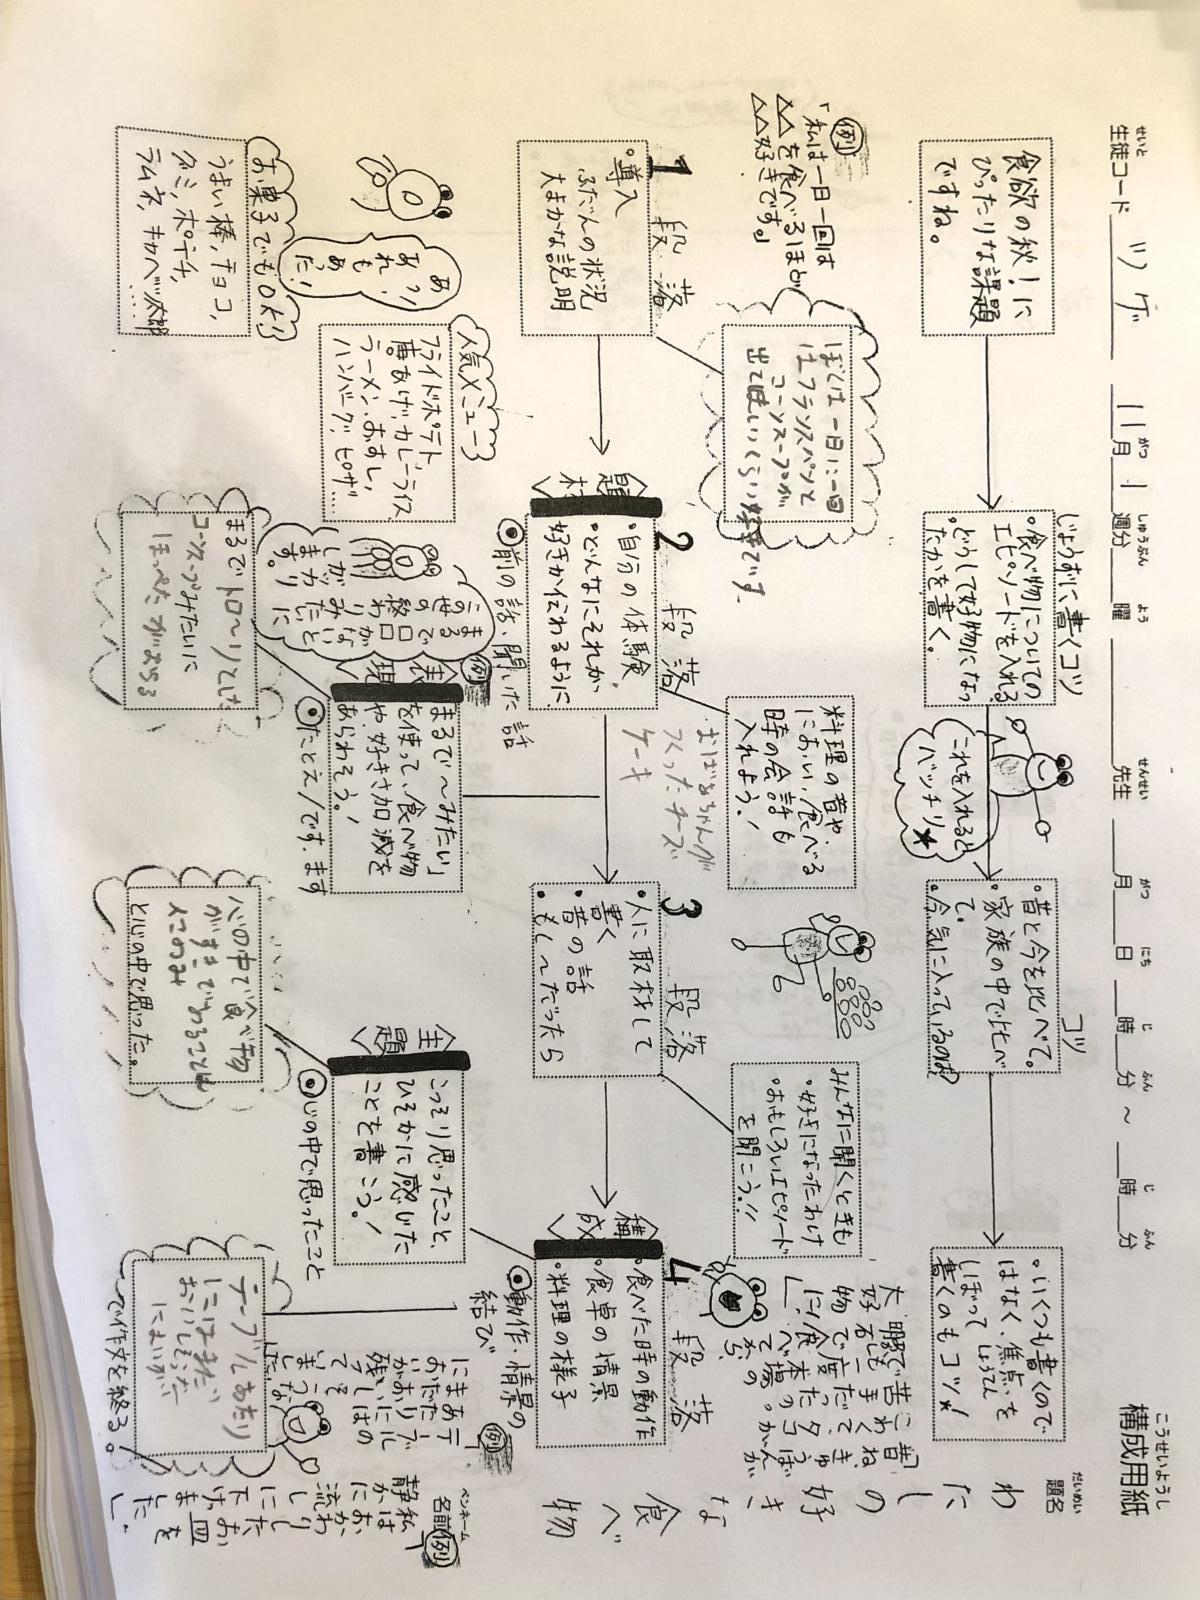 構成用紙
こうせいようし
せいと
生徒コード ツゲ
11月1週分 曜
がつ しゅうぶん よう
先生 月 日 時 分 ~ 時 分
せんせい がつ にち じ ふん じ ふん
だいめい
題名
わたしの好きな食べ物
ペンネーム
名前
食欲の秋!に
ぴったりな課題
ですね。
じょうずに書くコツ
・食べ物についての
エピソードを入れる
・どうして好物になっ
たかを書く。
これを入れると
バッチリ★
コツ
・昔と今を比べて。
・家族の中で比べ
て。
・今気に入っているのは?
・いくつも書くので
はなく、焦点を
しょうてん
しぼって
書くのもコツ★!
例
「私は一日一回は
△△を食べるほど
△△好きです。」
ぼくは一日に一回
はフランスパンと
コーンスープが
出てほしいくらい好きです
1段落
・導入
ふだんの状況
大まかな説明
料理の音や、
におい、食べる
時の会話も
入れよう!
おばあちゃんが
つくったチーズ
ケーキ
2段落
<題材>
・自分の体験
・どんなにそれが
好きか伝わるように
◎前の話・聞いた話
みんなに聞くときも
・好きになったわけ
・おもしろいエピソード
を聞こう!!
3段落
・人に取材して
書く
・昔の話
・もし~だったら
4段落
<構成>
・食べた時の動作
・食卓の情景
・料理の様子
◎動作・情景の
結び
人気メニュー
フライドポテト、
唐あげ、カレーライス、
ラーメン、おすし、
ハンバーグ、ピザ…
あっ!
あれも
あった!
お菓子でもOK!
うまい棒、チョコ、
グミ、ポテチ、
ラムネ、キャベツ太郎
……
<表現>
「まるで~みたい」
を使って、食べ物
や好きさ加減を
あらわそう!
◎たとえ/です、ます
例
まるで
この世の
終わり
みたいに
まるでトローリとした
コーンスープみたいに
ほっぺたがおちる
<主題>
こっそり思ったこと、
ひそかに感じた
ことを書こう!
◎心の中で思ったこと
心の中で食べ物
がすきであることは
と心の中で思った。
テーブルのあたり
にはまだ
おいしそうな
においが
で作文を終る。
例
例
「私は
静かに
お皿を
流しに
下げました」